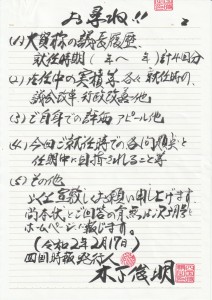 お尋ね!!
(1) 大賀様の議長履歴
就任時期(年〜年)計4回分
(2) 在任中の実績等 各々就任時の、
議会改革・行政改善他
(3) ご自身での アピール他
(4) 今回ご就任時での各々順実と
任期中に目指されること等
(5) その他
以上宜敷しくお願い申し上げます。
ご回答の 次月号と
ホームページに報じます。
(令和2年2月17日)
四国時報発行人
木下俊明